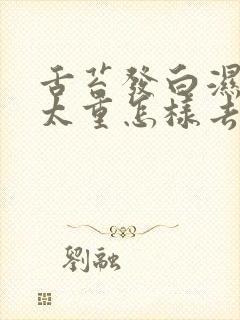 舌苔發白濕
太重怎樣去
劉融